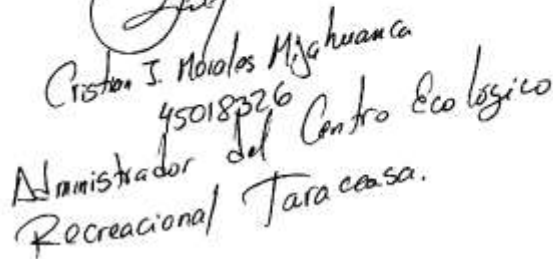 Cristian I. Morales Mijahuanca
45018326
Administrador del Centro Ecologico
Recreacional Taraccasa.